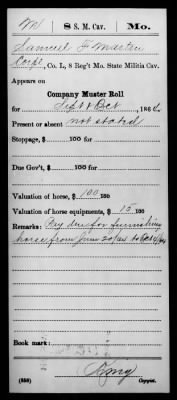 M | 8 S. M. Cav. | Mo.
Samuel F. Martin
Corp'l, Co. L, 8 Reg't Mo. State Militia Cav.
Appears on
Company Muster Roll
for Sept & Oct, 1864.
Present or absent not stated
Stoppage, $ 100 for
Due Gov't, $ 100 for
Valuation of horse, $ 100 100
Valuation of horse equipments, $ 15 100
Remarks: Pay due for furnishing
horse from June 20/64 to Oct
Book mark:
(358) King
Copyist.